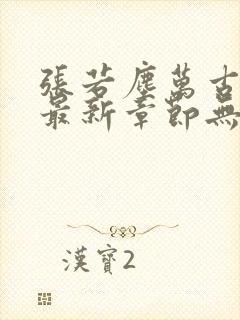 張若塵萬古
最新章節無
漢寶2